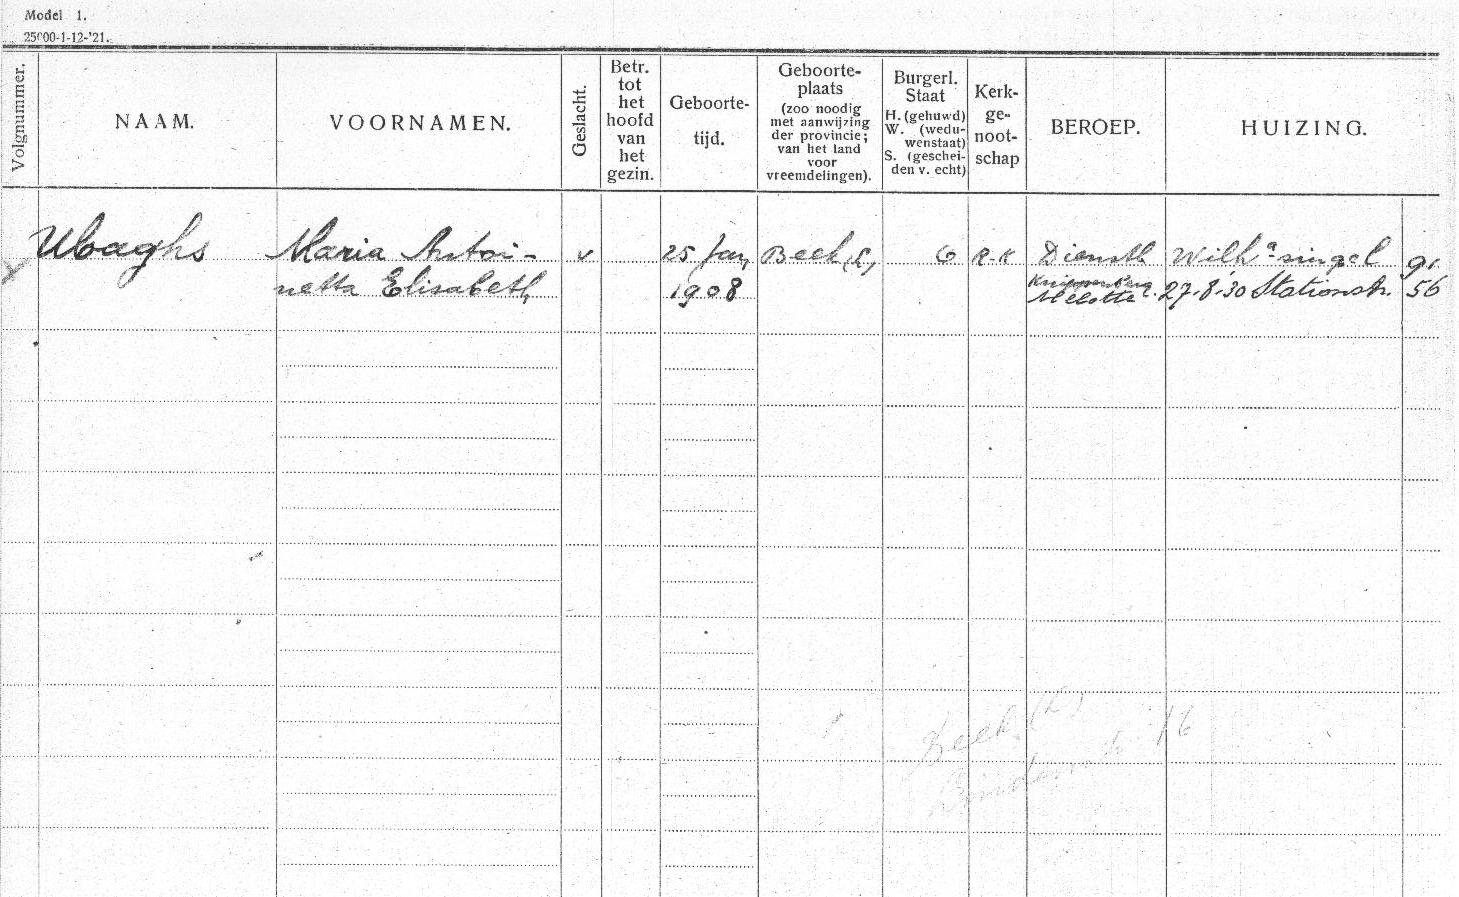 Model 1.
25000-1-12-'21.
Volgnummer.
NAAM.
VOORNAMEN.
Geslacht.
Betr.
tot
het
hoofd
van
het
gezin.
Geboorte-
tijd.
Geboorte-
plaats
(zoo noodig
met aanwijzing
der provincie;
van het land
voor
vreemdelingen).
Burgerl.
Staat
H. (gehuwd)
W. (wedu-
wenstaat)
S. (geschei-
den v. echt)
Kerk-
ge-
noot-
schap
BEROEP.
HUIZING.
Ubaghs
Maria Antoi-
netta Elisabeth
v
25 Jan
1908
Beek (L)
O
R.K
Dienstb
Knippenberg
Melotte
Wilh a singel 91
27.8.'30 Stationstr. 56
Beek (L)
16